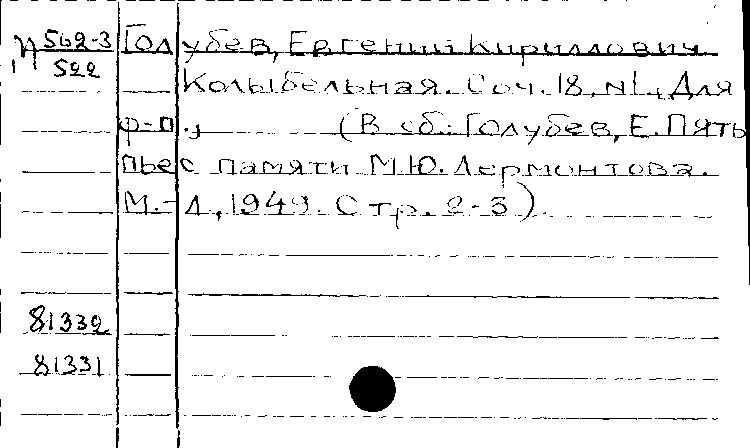 И 562-3 Голубев, Евгений Кириллович
522
Колыбельная. Соч. 18, N1, Для
ф-п., (В сб.: Голубев, Е. Пять
пьес памяти М.Ю. Лермонтова.
М.-Л., 1949. Стр. 2-3).
81332
81331